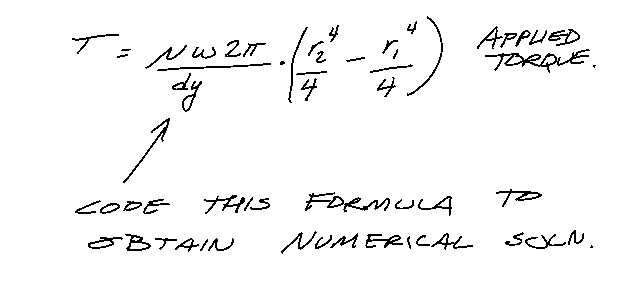 T = μω2π/dy · (r₂⁴/4 - r₁⁴/4) APPLIED TORQUE.
CODE THIS FORMULA TO
OBTAIN NUMERICAL SOLN.